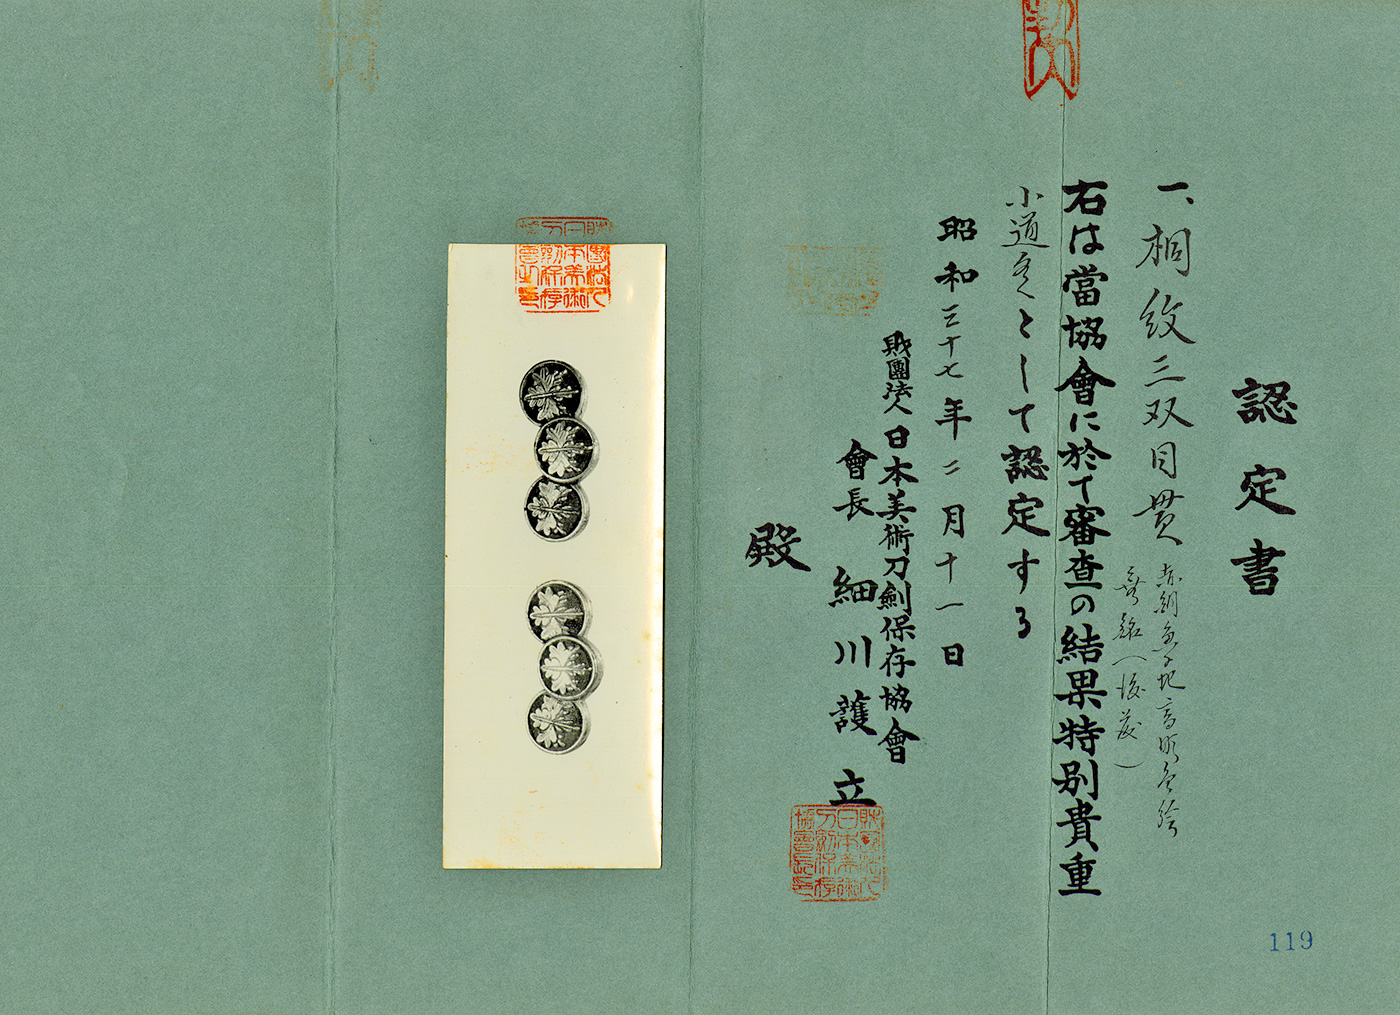 認定書
一、桐紋三双目貫
赤銅魚子地高彫色絵
無銘（後藤）
右は當協會に於て審査の結果特別貴重
小道具として認定する
昭和三十七年二月十一日
財團法人日本美術刀劍保存協會
會長 細川護立
殿
財團法人日本美術刀劍保存協會長印
119